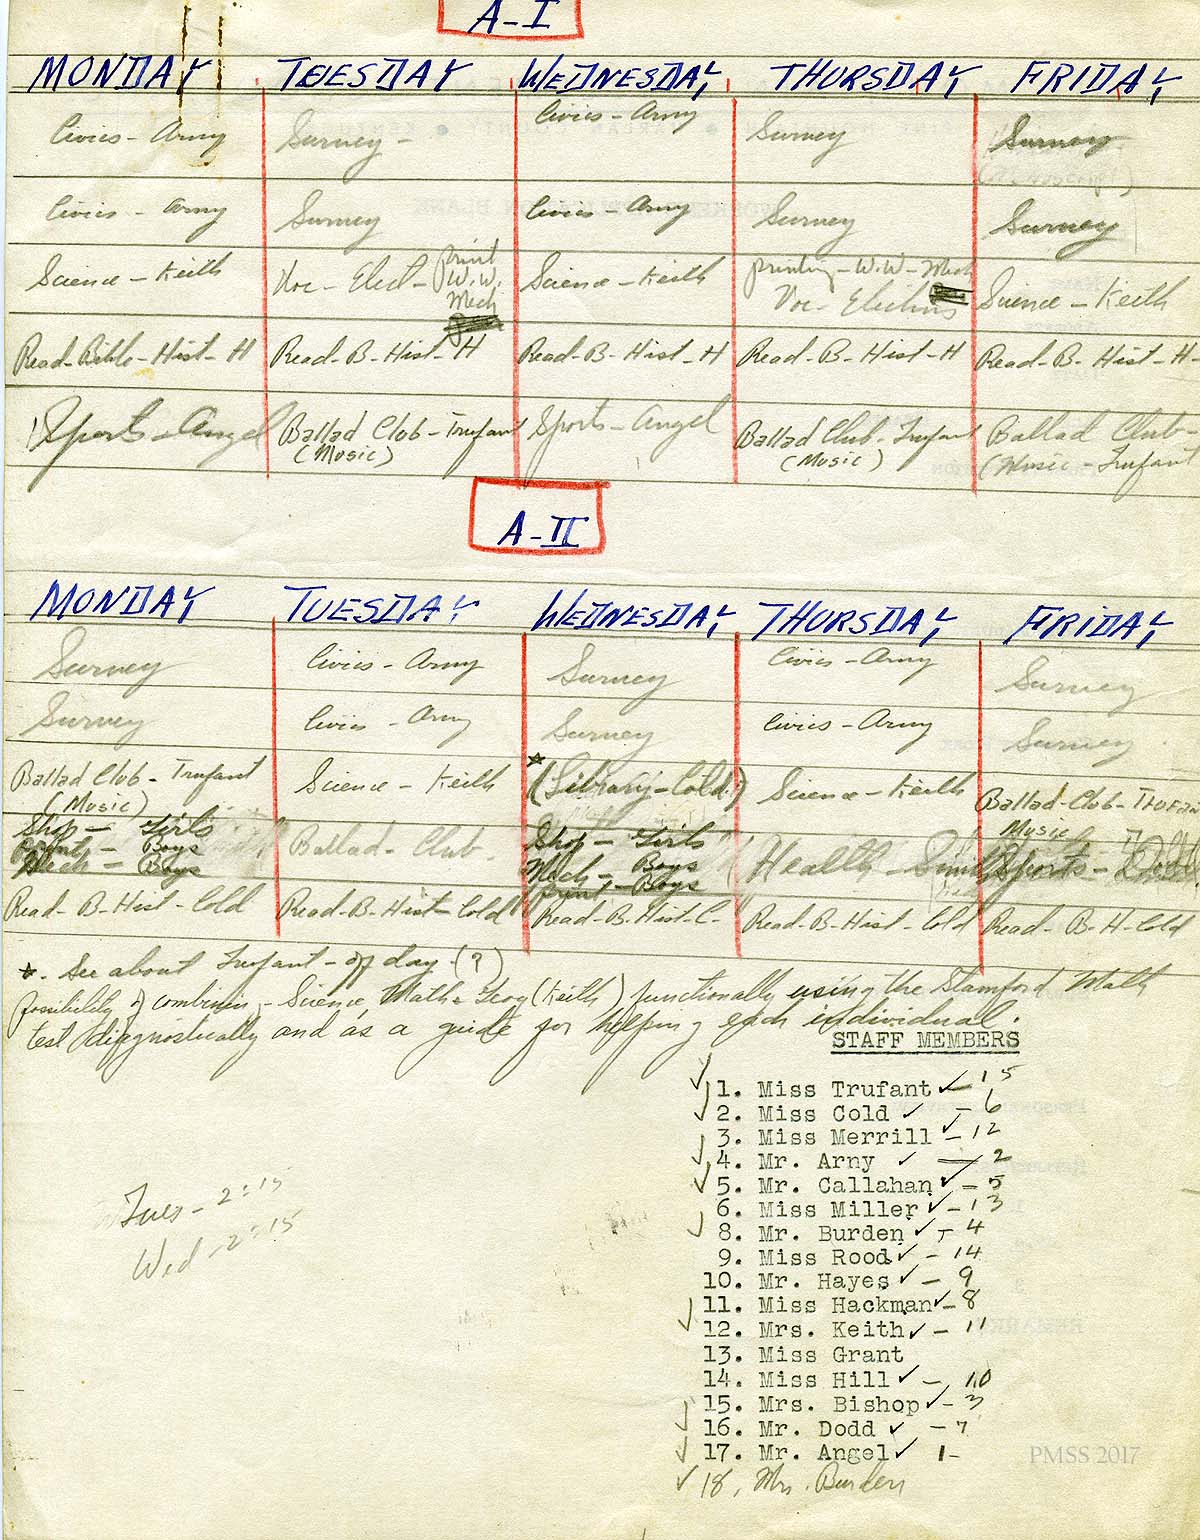 A-I
MONDAY TUESDAY WEDNESDAY THURSDAY FRIDAY
Civics - Army Survey - Civics - Army Survey Survey
Civics - Army Survey Civics - Army Survey Survey
Science - Keith Voc - Elect - print W.W. Mech Science - Keith printing - W.W - Mech Voc - Science - Keith
Read - Bible - Hist - H Read - B - Hist - H Read - B - Hist - H Read - B - Hist - H Read - B - Hist - H -
Sports - Angel Ballad Club - Trufant Sports - Angel Ballad Club - Trufant Ballad Club -
(Music) (Music) (Music - Trufant
A-II
MONDAY TUESDAY WEDNESDAY THURSDAY FRIDAY
Survey Civics - Army Survey Civics - Army Survey
Survey Civics - Army Survey Civics - Army Survey
Ballad Club - Trufant Science - Keith * (Library - Cold) Science - Keith Ballad - Club - Trufant
(Music) Music
Shop - Girls Ballad - Club - Shop - Girls Health - Sports - Dodd
print - Boys Mech - Boys
Mech - Boys print - Boys
Read - B - Hist - Cold Read - B - Hist - Cold Read - B - Hist - C - Read - B - Hist - Cold Read - B - H - Cold
* . See about Trufant - off day - (?)
possibility of combining - Science, Math & Geog (Keith) functionally using the Stamford Math
test diagnostically and as a guide for helping each individual.
STAFF MEMBERS
✓ 1. Miss Trufant ✓ - 15
✓ 2. Miss Cold ✓ - 6
3. Miss Merrill ✓ - 12
✓ 4. Mr. Arny ✓ - 2
✓ 5. Mr. Callahan ✓ - 5
6. Miss Miller ✓ - 13
✓ 8. Mr. Burden ✓ - 4
9. Miss Rood ✓ - 14
10. Mr. Hayes ✓ - 9
11. Miss Hackman ✓ - 8
✓ 12. Mrs. Keith ✓ - 11
13. Miss Grant
14. Miss Hill ✓ - 10
15. Mrs. Bishop ✓ - 3
✓ 16. Mr. Dodd ✓ - 7
✓ 17. Mr. Angel ✓ 1 -
✓ 18, Mrs. Burden
Tues - 2:15
Wed - 2:15
PMSS 2017